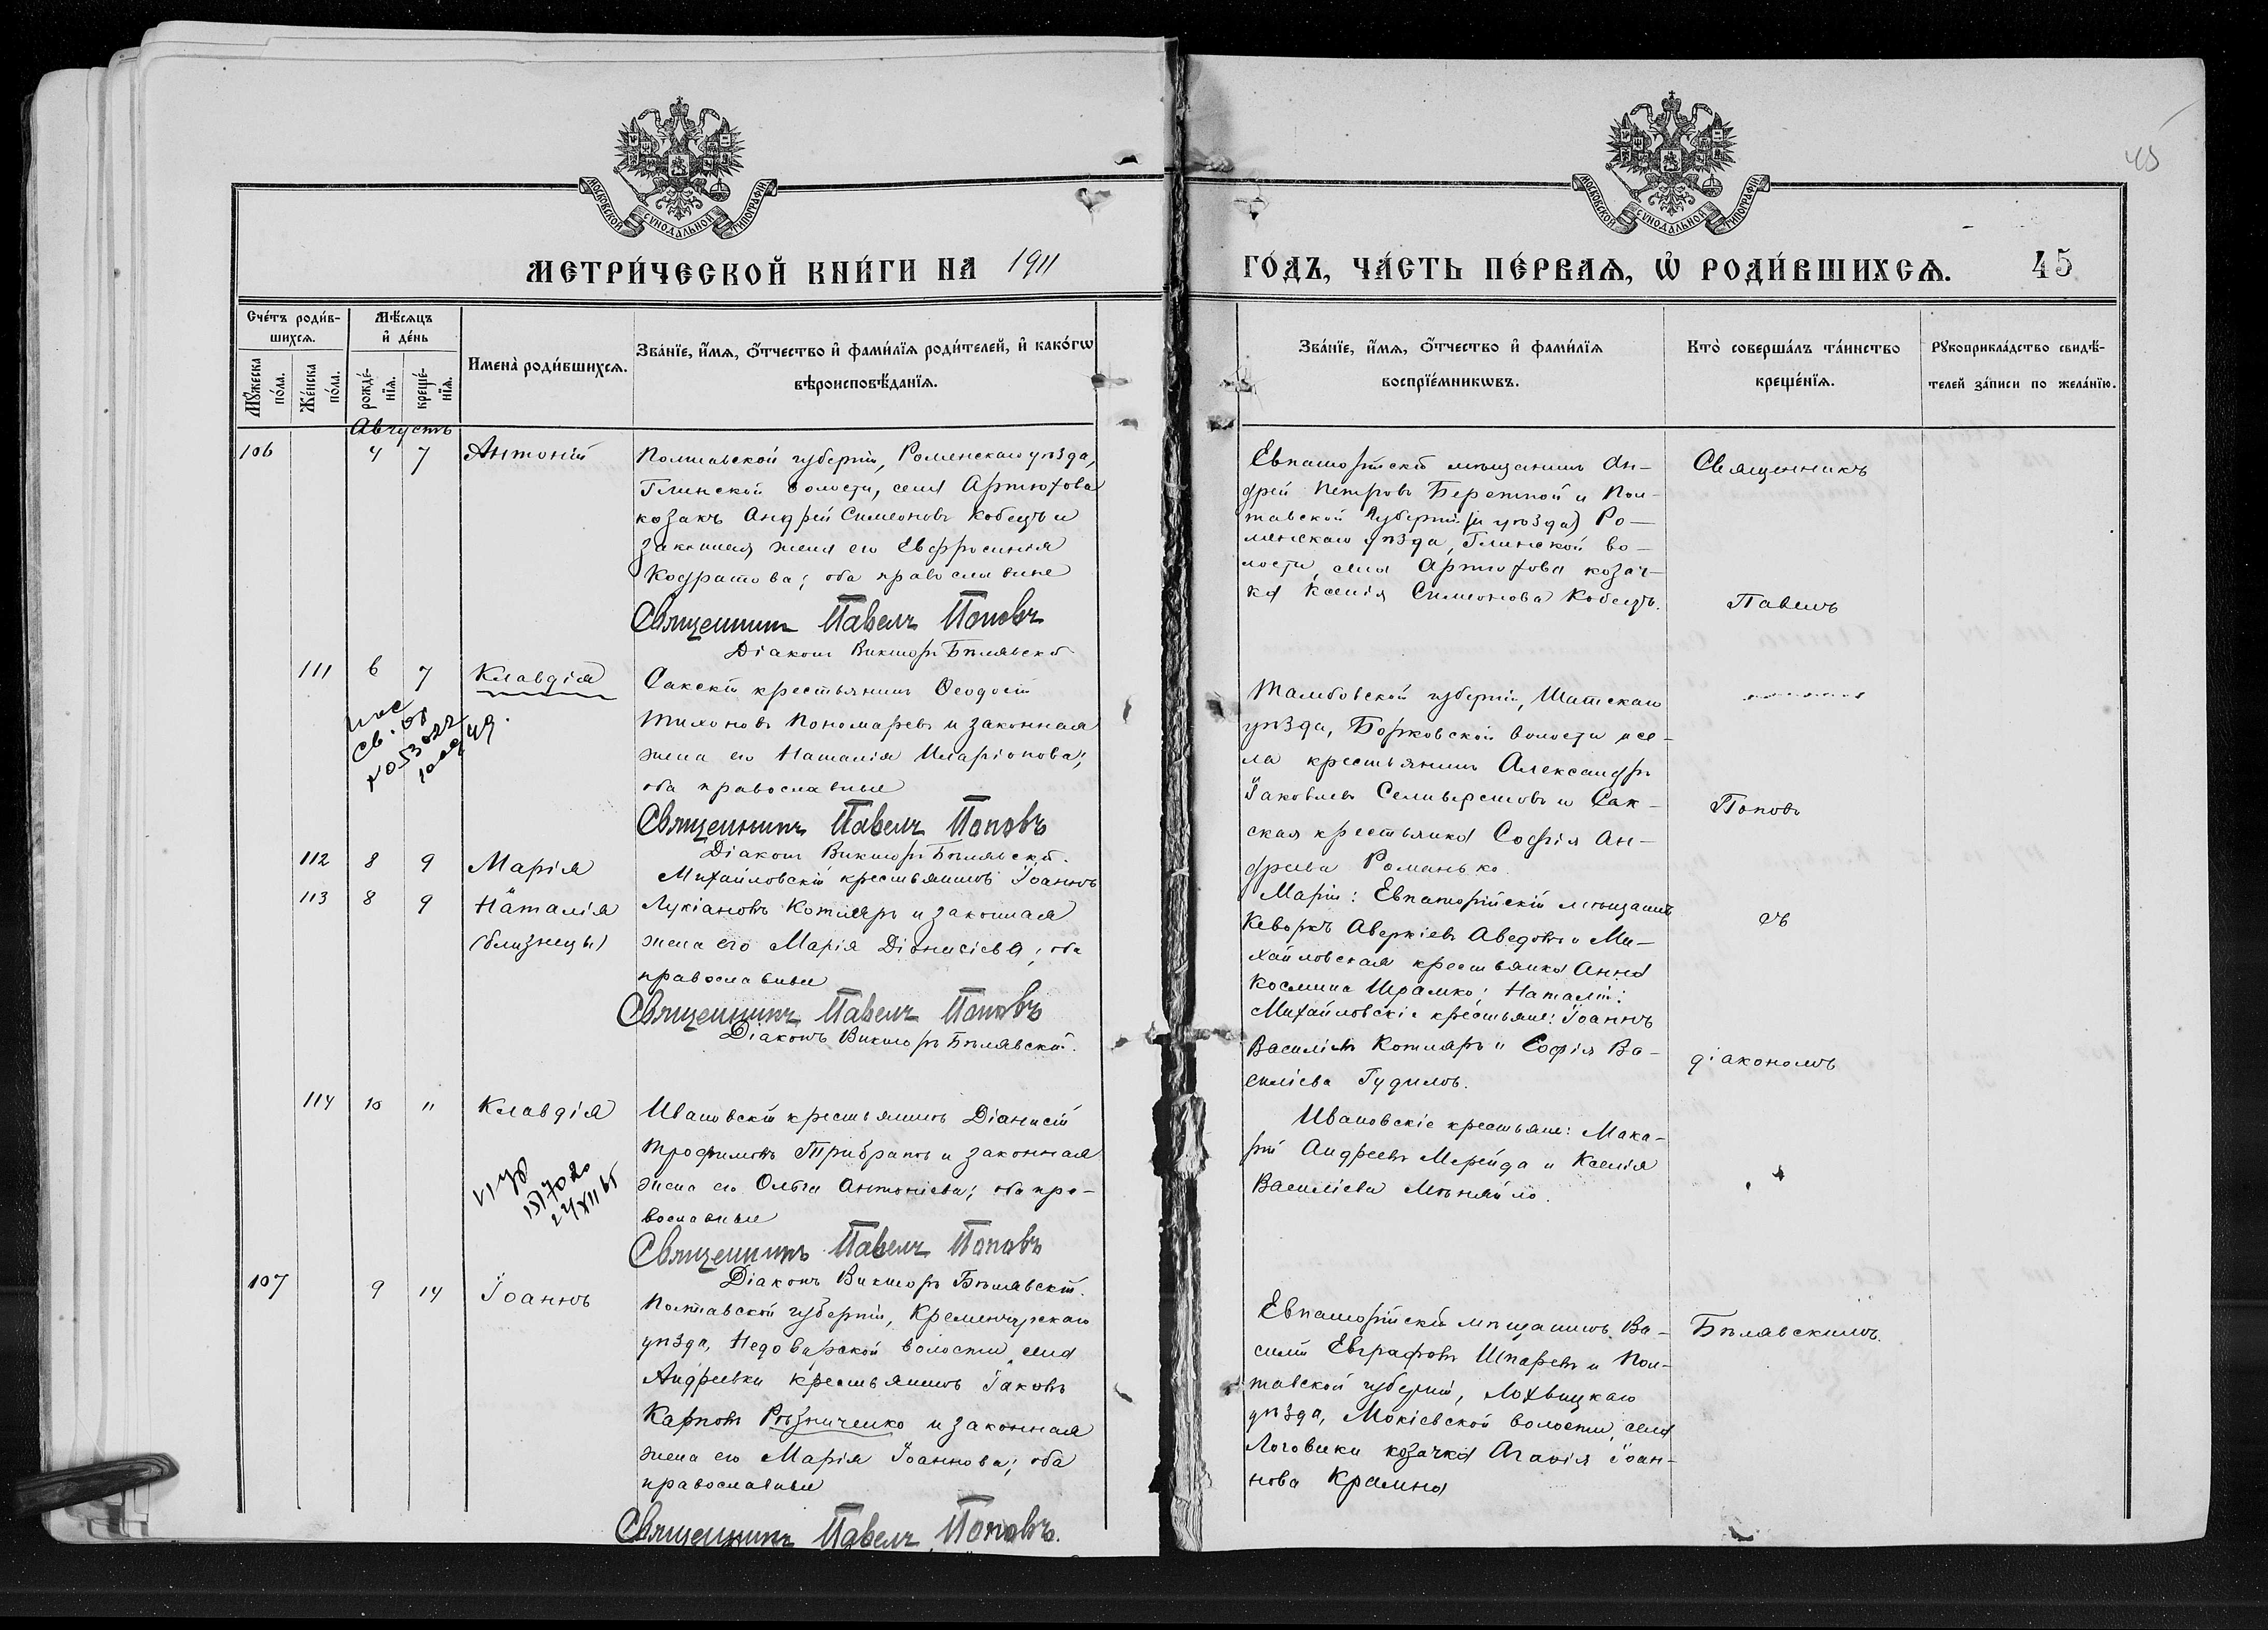 МОСКОВСКОЙ СѴНОДАЛЬНОЙ ТИПОГРАФІИ
МОСКОВСКОЙ СѴНОДАЛЬНОЙ ТИПОГРАФІИ
45
МЕТРИ́ЧЕСКОЙ КНИ́ГИ НА 1911
ГО́ДЪ, ЧА́СТЬ ПЕ́РВАѦ, Ѡ҆ РОДИ́ВШИХСѦ. 45
Сче́тъ роди́в-
шихсѧ.
Мꙋ́жеска
по́ла.
Же́нска
по́ла.
Мѣ́сѧцъ
и҆ де́нь
рожде́-
нїѧ.
креще́-
нїѧ.
Имена̀ роди́вшихсѧ.
Зва́нїе, и҆́мѧ, ѻ҆́тчество и҆ фами́лїѧ роди́телей, и҆ како́гѡ
вѣроисповѣ́данїѧ.
Зва́нїе, и҆́мѧ, ѻ҆́тчество и҆ фами́лїѧ
воспрїе́мникѡвъ.
Кто̀ соверша́лъ та́инство
креще́нїѧ.
Рꙋкоприкла́дство свидѣ́-
телей за́писи по жела́нїю.
Августъ
106 4 7 Антоній
Полтавской губерніи, Роменскаго уѣзда,
Глинской волости, села Артюхова
козакъ Андрей Симеоновъ Кобецъ и
законная жена его Евфросинія
Кодратова; оба православные
Священникъ Павелъ Поповъ
Діаконъ Викторъ Бѣлявскій
Евпаторійскій мѣщанинъ Ан-
дрей Петровъ Бережной и Пол-
тавской губерніи (и уѣзда) Ро-
менскаго уѣзда, Глинской во-
лости, села Артюхова козач-
ка Ксенія Симеонова Кобецъ.
Священникъ
Павелъ
111 6 7 Клавдія
Сакскій крестьянинъ Ѳеодосій
Тихоновъ Пономаревъ и законная
жена его Наталія Иларіонова;
оба православные
Священникъ Павелъ Поповъ
Діаконъ Викторъ Бѣлявскій.
Тамбовской губерніи, Шатскаго
уѣзда, Борковской волости и се-
ла крестьянинъ Александръ
Іаковлевъ Селиверстовъ и Сак-
ская крестьянка Софія Ан-
дреева Романько.
Поповъ
112 8 9 Марія
113 8 9 Наталія
(близнецы)
Михайловскій крестьянинъ Іоаннъ
Лукіановъ Котляръ и законная
жена его Марія Діонисіева; оба
православные
Священникъ Павелъ Поповъ
Діаконъ Викторъ Бѣлявскій.
Маріи: Евпаторійскій мѣщанинъ
Кеворкъ Аверкіевъ Аведовъ и Ми-
хайловская крестьянка Анна
Космина Шрамко; Наталіи:
Михайловскіе крестьяне: Іоаннъ
Василіевъ Котляръ и Софія Ва-
силіева Гудимъ.
съ
діакономъ
114 10 11 Клавдія
Ивановскій крестьянинъ Діонисій
Трофимовъ Трибратъ и законная
жена его Ольга Антоніева; оба пра-
вославные
Священникъ Павелъ Поповъ
Діаконъ Викторъ Бѣлявскій.
Ивановскіе крестьяне: Мака-
рій Андреевъ Мерейда и Ксенія
Василіева Мѣняйло.
107 9 14 Іоаннъ
Полтавской губерніи, Кременчугскаго
уѣзда, Недогарской волости, села
Андреевки крестьянинъ Іаковъ
Карповъ Рѣзниченко и законная
жена его Марія Іоаннова; оба
православные
Священникъ Павелъ Поповъ.
Евпаторійскій мѣщанинъ Ва-
силій Евграфовъ Шпаревъ и Пол-
тавской губерніи, Лохвицкаго
уѣзда, Мокіевской волости, села
Логовики козачка Агафія Іоан-
нова Крамна
Бѣлявскимъ.